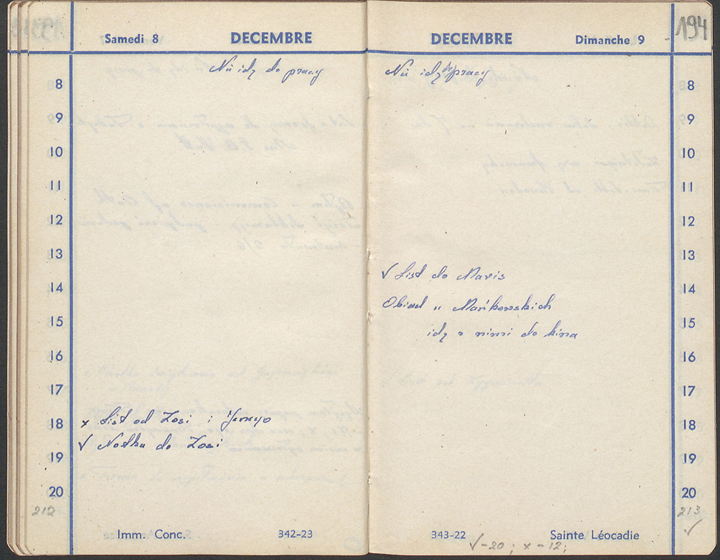 Samedi 8 DECEMBRE
Nie idę do pracy
8
9
10
11
12
13
14
15
16
17
18
19
20
x List od Zosi i Jerzego
√ Notka do Zosi
212
Imm. Conc. 342-23
DECEMBRE Dimanche 9
194
Nie idę do pracy
8
9
10
11
12
13
14
15
16
17
18
19
20
√ List do Marii
Obiad u Mańkowskich
idę z nimi do kina
213
√
343-22 Sainte Léocadie
√-20; x-12;